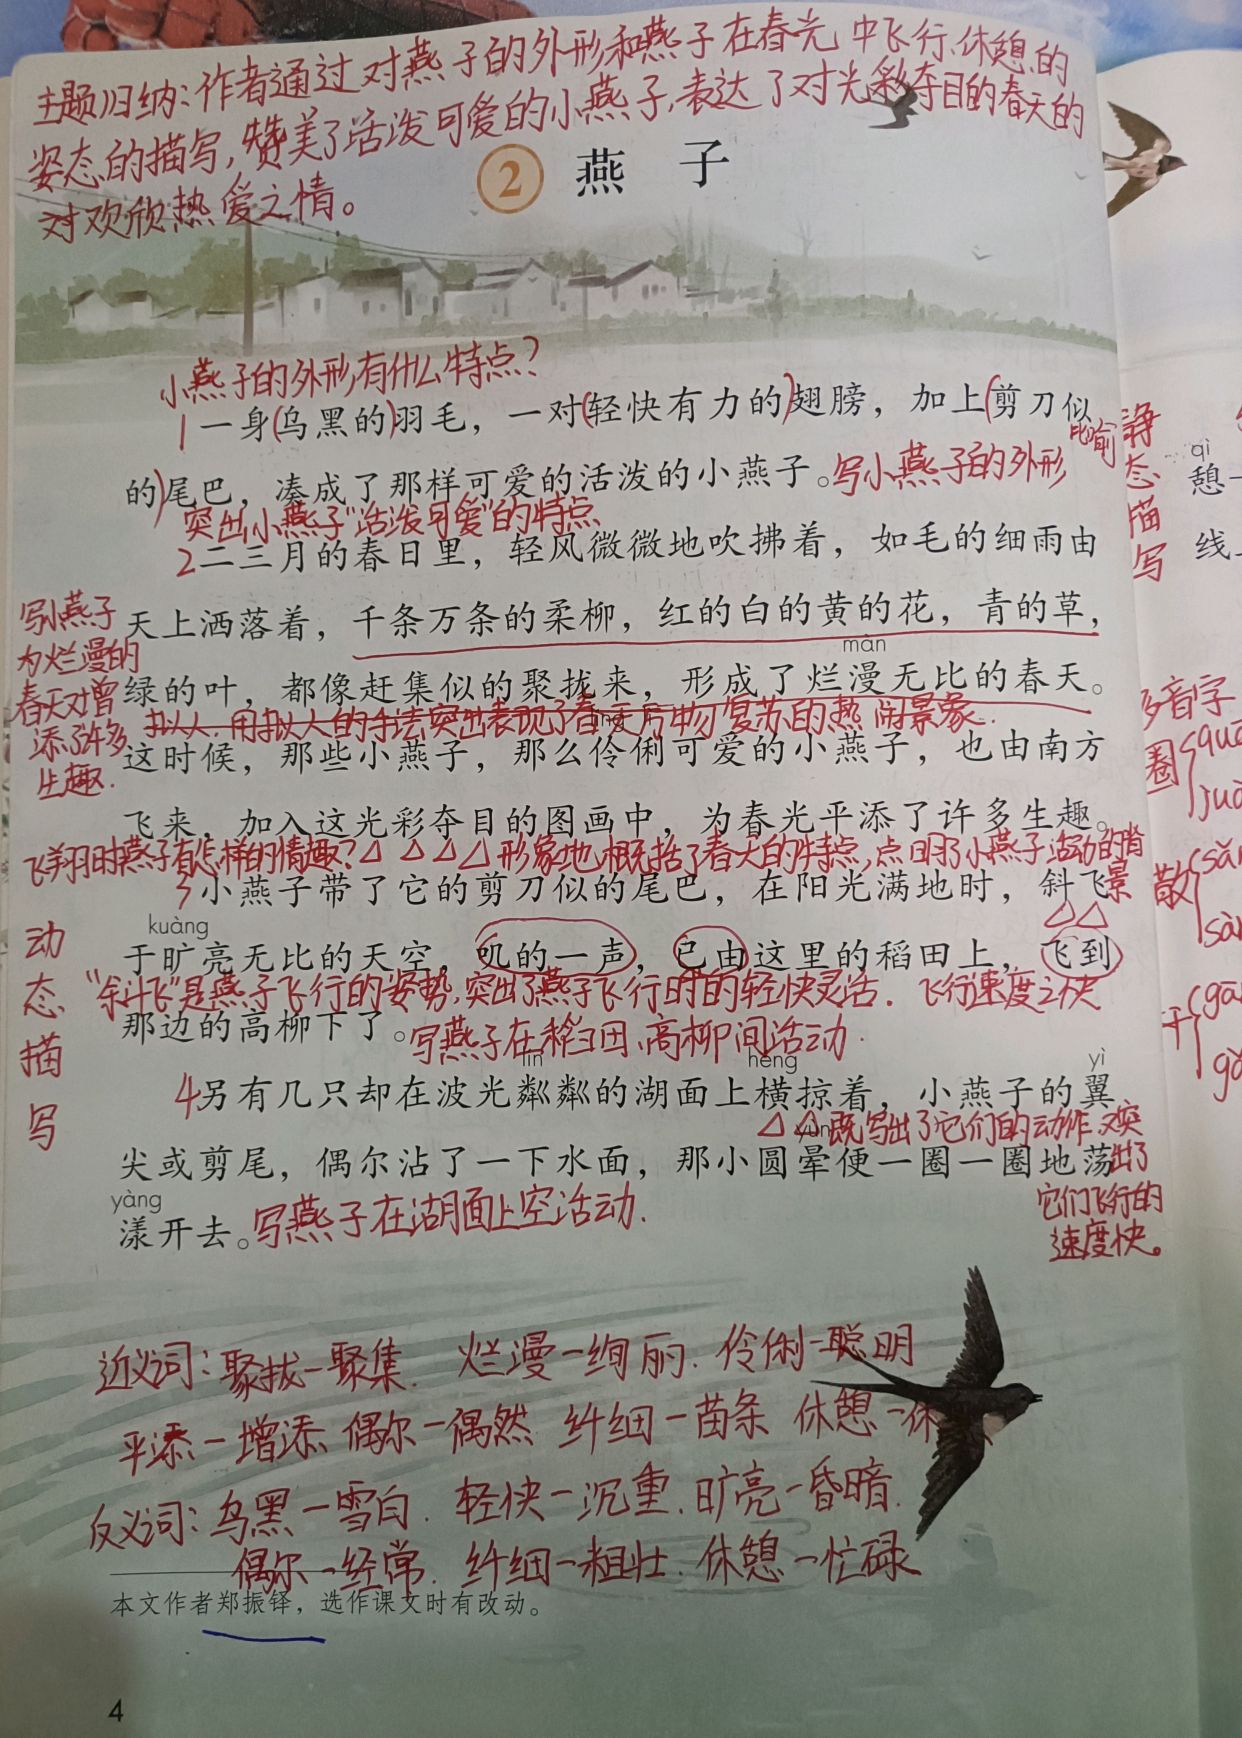 主题归纳：作者通过对燕子的外形和燕子在春光中飞行、休憩的
姿态的描写，赞美了活泼可爱的小燕子，表达了对光彩夺目的春天的
对欢欣热爱之情。
2 燕子
小燕子的外形有什么特点？
1 一身(乌黑的)羽毛，一对(轻快有力的)翅膀，加上(剪刀似
比喻
的)尾巴，凑成了那样可爱的活泼的小燕子。写小燕子的外形
突出小燕子“活泼可爱”的特点
静态描写
2 二三月的春日里，轻风微微地吹拂着，如毛的细雨由
天上洒落着，千条万条的柔柳，红的白的黄的花，青的草，
màn
绿的叶，都像赶集似的聚拢来，形成了烂漫无比的春天。
拟人.用拟人的手法突出表现了春天万物复苏的热闹景象.
这时候，那些小燕子，那么伶俐可爱的小燕子，也由南方
飞来，加入这光彩夺目的图画中，为春光平添了许多生趣。
写小燕子
为烂漫的
春天对增
添了许多
生趣.
飞翔时燕子有怎样的情趣？形象地概括了春天的特点，点明了小燕子活动的背
景
3 小燕子带了它的剪刀似的尾巴，在阳光满地时，斜飞
kuàng
于旷亮无比的天空，叽的一声，已由这里的稻田上，飞到
“斜飞”是燕子飞行的姿势，突出了燕子飞行时的轻快灵活.飞行速度之快
那边的高柳下了。写燕子在稻田、高柳间活动.
动态描写
lín héng yì
4 另有几只却在波光粼粼的湖面上横掠着，小燕子的翼
既写出了它们的动作又突
出了
它们飞行的
速度快。
尖或剪尾，偶尔沾了一下水面，那小圆晕便一圈一圈地荡
yàng
漾开去。写燕子在湖面上空活动.
近义词：聚拢—聚集. 烂漫—绚丽. 伶俐—聪明
平添—增添 偶尔—偶然 纤细—苗条 休憩—休
反义词：乌黑—雪白. 轻快—沉重. 旷亮—昏暗.
偶尔—经常. 纤细—粗壮. 休憩—忙碌
本文作者郑振铎，选作课文时有改动。
4
qì
憩
线
多音字
圈
散
干